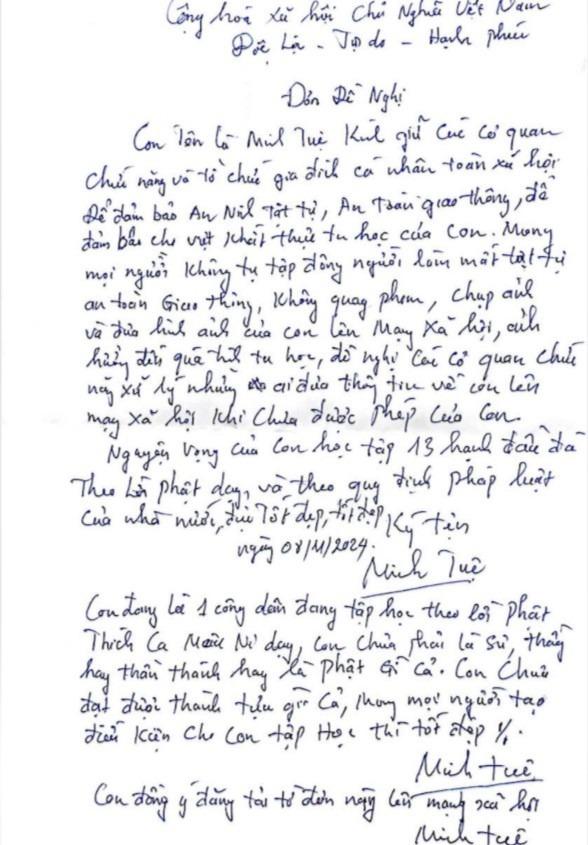 Cộng hoà xã hội Chủ Nghĩa Việt Nam
Độc Lập - Tự do - Hạnh phúc
Đơn Đề Nghị
Con Tên là Minh Tuệ Kính gửi Các Cơ quan
Chức năng và tổ chức gia đình cá nhân toàn xã hội
Để đảm bảo An Ninh Trật tự, An Toàn giao thông, để
đảm bảo cho việc Khất thực tu học của Con. Mong
mọi người Không tụ tập đông người làm mất trật tự
an toàn Giao thông, Không quay phim, Chụp ảnh
và đưa hình ảnh của con lên Mạng Xã hội, ảnh
hưởng đến quá trình tu học, đề nghị Các cơ quan chức
năng xử lý những ai đưa thông tin về con lên
mạng xã hội Khi Chưa được phép Của Con.
Nguyện vọng của Con học tập 13 hạnh đầu đà
Theo Lời phật dạy, và theo quy định pháp luật
Của nhà nước, tốt đẹp, tốt đẹp
Ký tên
ngày 08/11/2024.
Minh Tuệ
Con đang là 1 công dân đang tập học theo lời Phật
Thích Ca Mâu Ni dạy, Con Chưa phải là Sư, thầy
hay thần thánh hay là Phật Gì Cả. Con Chưa
đạt được thành tựu gì Cả, Mong mọi người tạo
điều Kiện Cho Con tập Học thì tốt đẹp %.
Minh tuệ
Con đồng ý đăng tải tờ đơn này lên mạng xã hội
Minh tuệ